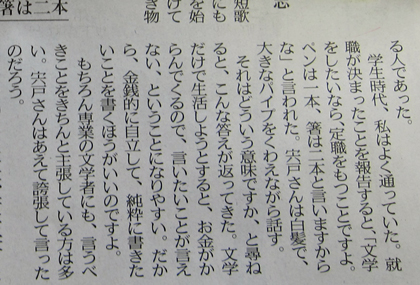 る人であった。
学生時代、私はよく通っていた。就
職が決まったことを報告すると、「文学
をしたいなら、定職をもつことですよ。
ペンは一本、箸は二本と言いますから
な」と言われた。宍戸さんは白髪で、
大きなパイプをくわえながら話す。
それはどういう意味ですか、と尋ね
ると、こんな答えが返ってきた。文学
だけで生活しようとすると、お金がか
らんでくるので、言いたいことが言え
ない、ということになりやすい。だか
ら、金銭的に自立して、純粋に書きた
いことを書くほうがいいのですよ。
もちろん専業の文学者にも、言うべ
きことをきちんと主張している方は多
い。宍戸さんはあえて誇張して言った
のだろう。
短歌
にも
を始
けて
き物
箸は二本